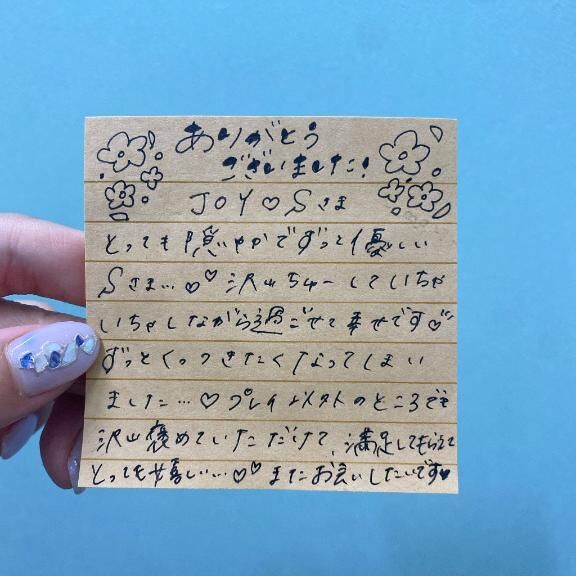 ありがとう
ございました!
JOY♡Sさま
とっても隠やかでずっと優しい
Sさま…♡♡沢山ちゅーしていちゃ
いちゃしながら過ごせて幸せです♡
ずっとくっつきたくなってしまい
ました…♡プレイ以外のところでも
沢山褒めていただけて、満足してもらえて
とっても嬉しい…♡♡またお会いしたいです♥